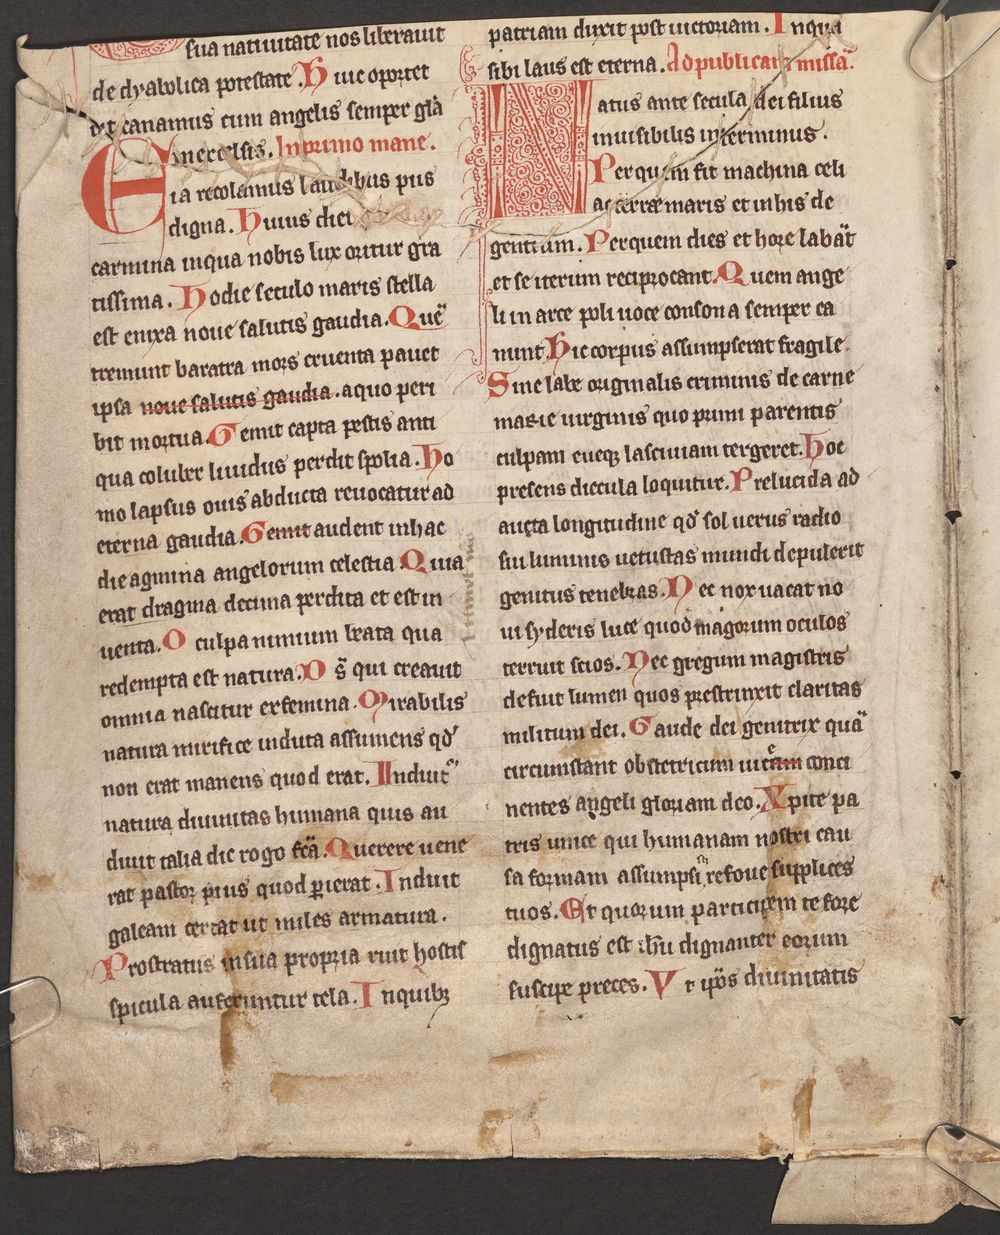 sua natiuitate nos liberauit
de dyabolica potestate. Huic oportet
ut canamus cum angelis semper glā
in excelsis. In primo mane.
Eia recolamus laudibus piis
digna. Huius diei
carmina in qua nobis lux oritur gra
tissima. Hodie seculo maris stella
est enixa noue salutis gaudia. Quē
tremunt baratra mors cruenta pauet
ipsa noue salutis gaudia. a quo peri
bit mortua. Gemit capta pestis anti
qua coluber liuidus perdit spolia. Ho
mo lapsus ouis abducta reuocatur ad
eterna gaudia. Gemit audent in hac
die agmina angelorum celestia Quia
erat dragma decima perdita et est in
uenta. O culpa nimium beata qua
redempta est natura. Ds̄ qui creauit
omnia nascitur ex femina. Mirabilis
natura mirifice induta assumens qd'
non erat manens quod erat. Induit'
natura diuinitas humana quis au
diuit talia dic rogo fcā. Querere uene
rat pastor pius quod perierat. Induit
galeam certat ut miles armatura.
Prostratus in sua propria ruit hostis
spicula auferuntur tela. In quibꝫ
patriam duxit post uictoriam. In qua
sibi laus est eterna. Ad publicam missā.
Natus ante secula dei filius
inuisibilis interminus.
Per quem fit machina celi
ac terre maris et in his de
gentium. Per quem dies et hore labāt
et se iterum reciprocant. Quem ange
li in arce poli uoce consona semper ca
nunt. Hic corpus assumpserat fragile.
Sine labe originalis criminis de carne
marie uirginis quo primi parentis
culpam eueqꝫ lasciuiam tergeret. Hoc
presens diecula loquitur. Prelucida ad
aucta longitudine qd' sol uerus radio
sui luminis uetustas mundi depulerit
genitus tenebras. Nec nox uacat no
ui syderis luce quod magorum oculos
terruit scios. Nec gregum magistris
defuit lumen quos prestrinxit claritas
militum dei. Gaude dei genitrix quā
circumstant obstetricum uicēam conci
nentes angeli gloriam deo. Xpite pa
tris unice qui humanam nostri cau
sa formam assumpsi refoue supplices
tuos. Et quorum participem te fore
dignatus est ihū dignanter eorum
suscipe preces. Vt ipōs diuinitatis